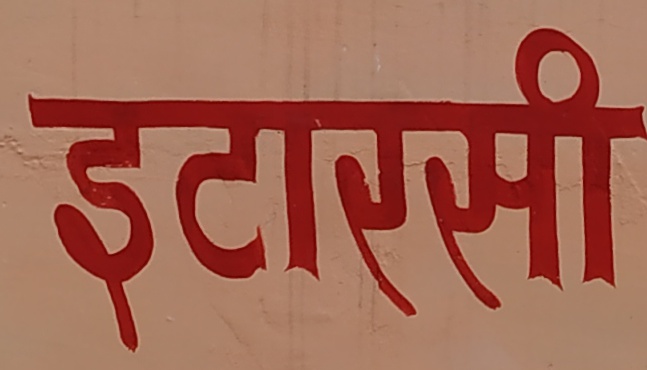 इटारसी